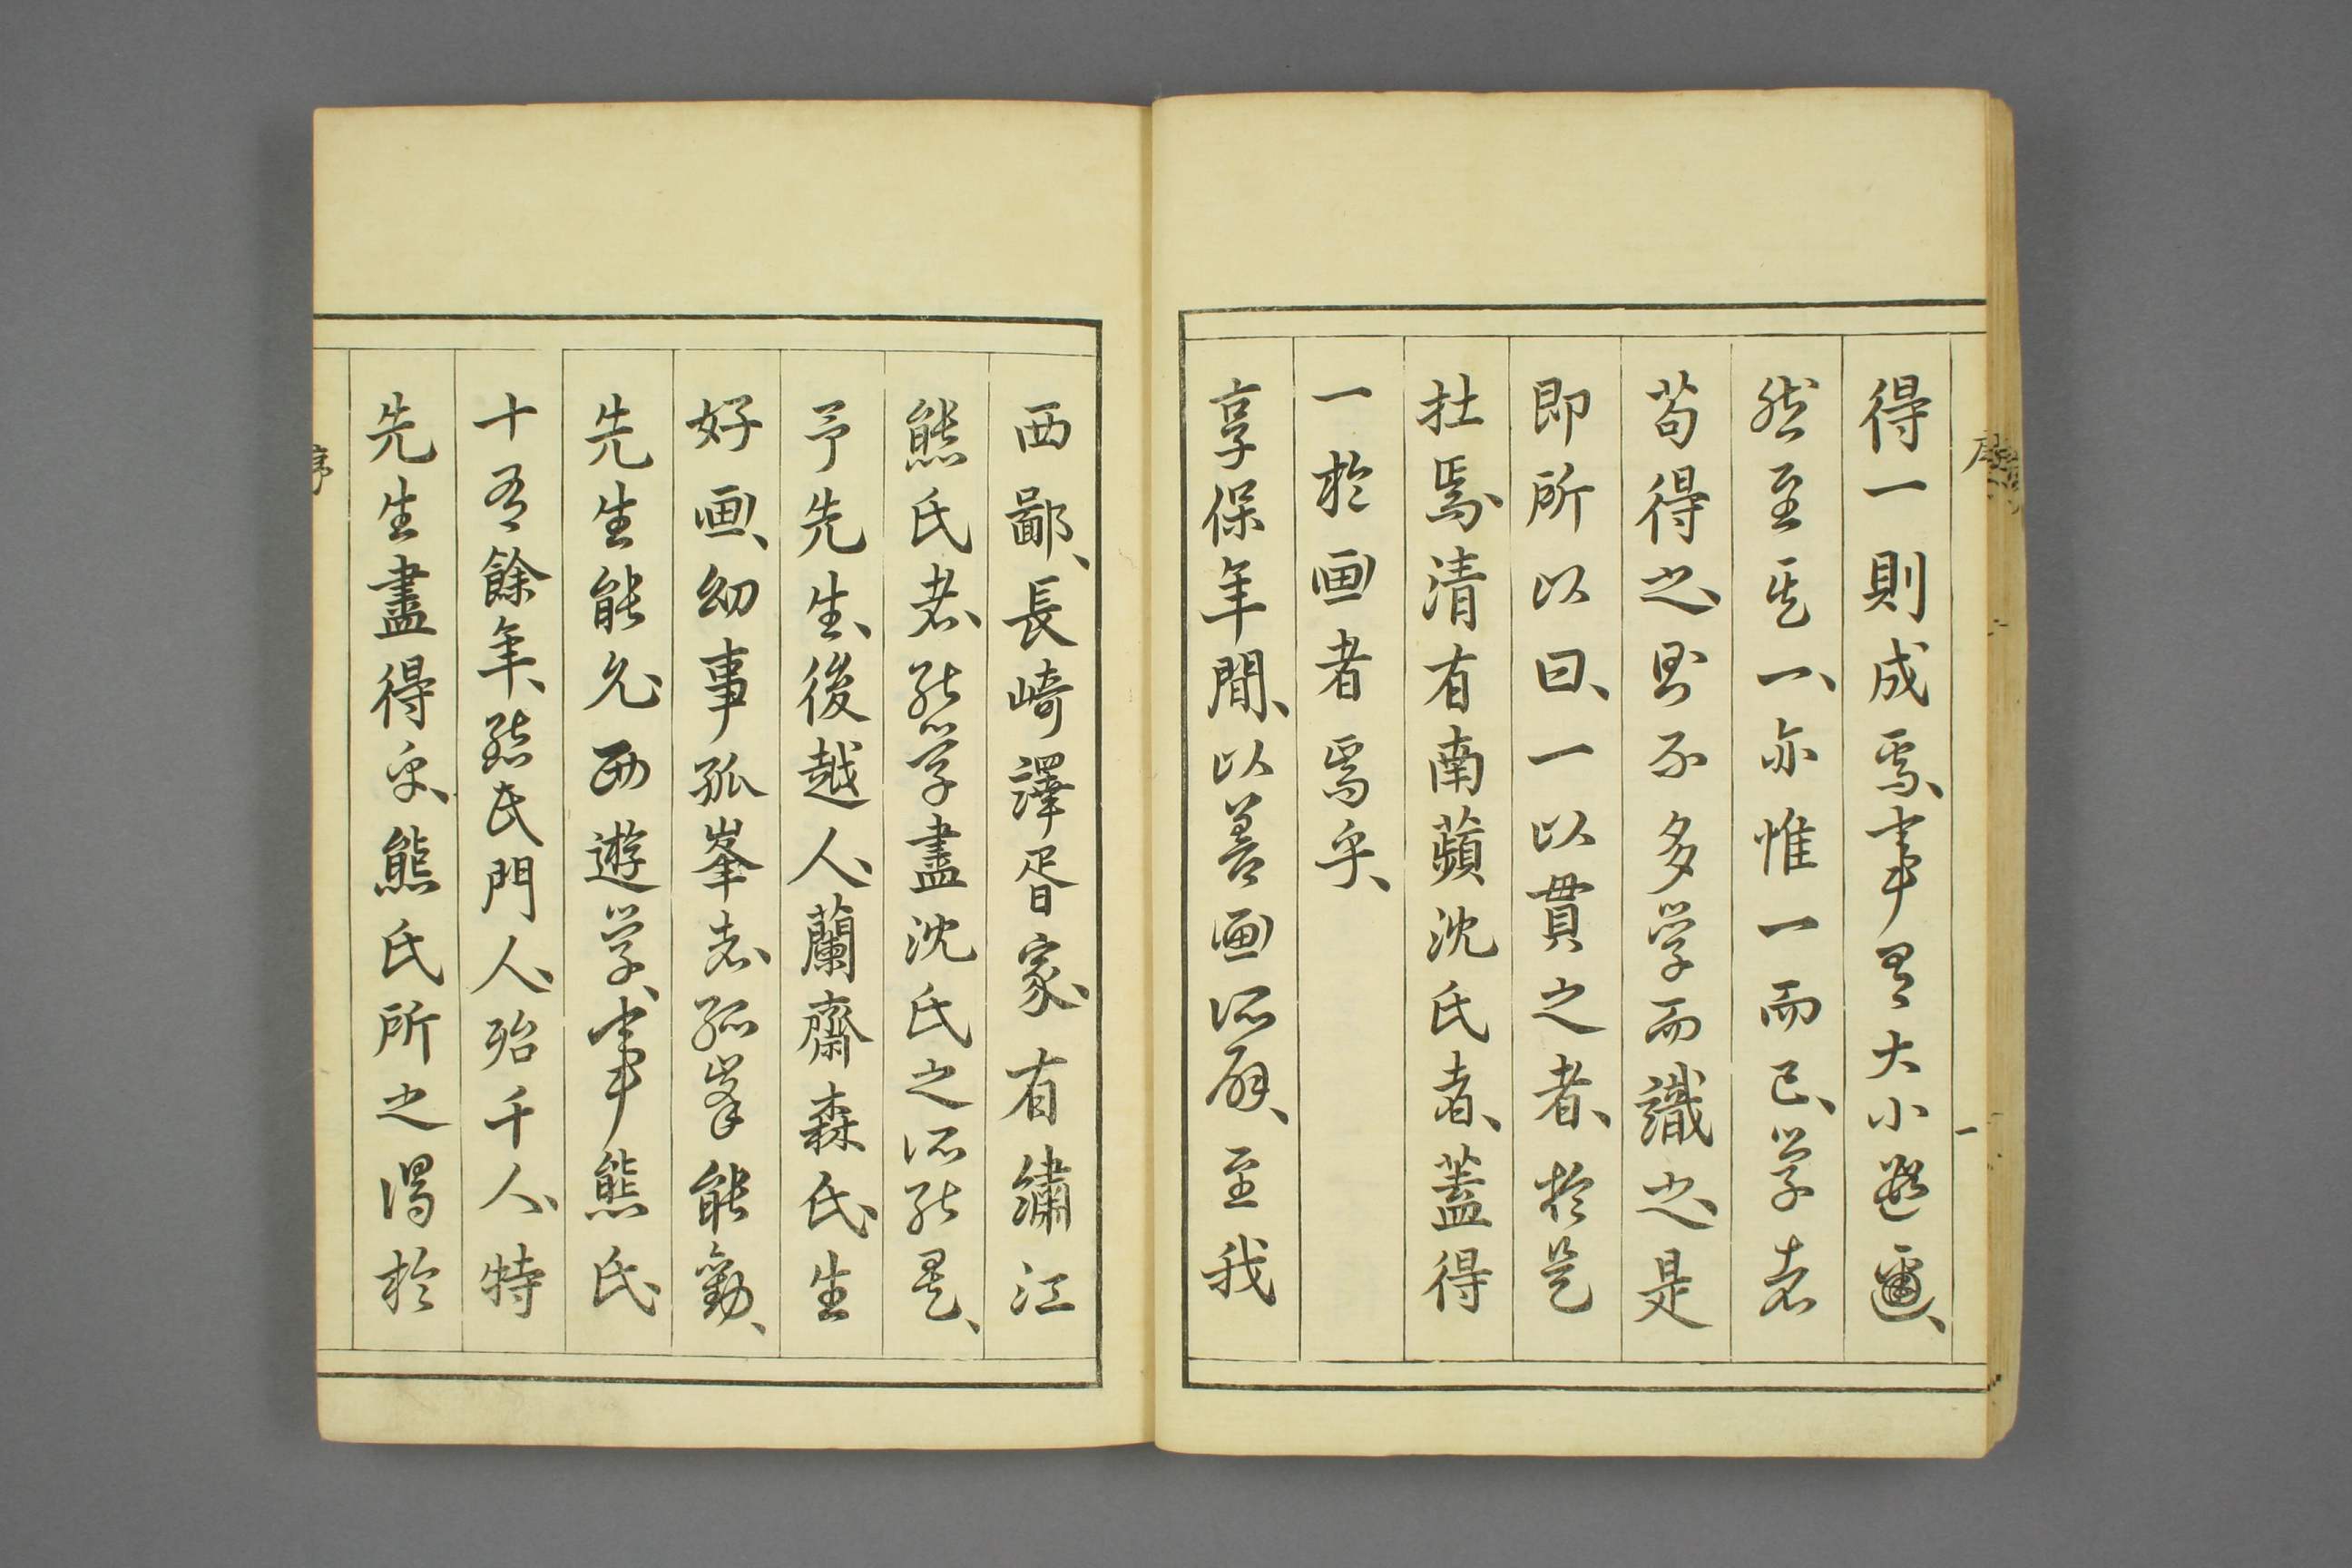 得一則成焉、事有大小遐邇、
然至其一、亦惟一而已、学者
苟得之、則不多学而識之、是
即所以曰、一以貫之者、於是
在焉、清有南蘋沈氏者、蓋得
一於画者焉乎、
享保年間、以善画所辟、至我
西鄙、長崎譯胥家、有繍江
熊氏者、能学盡沈氏之所能是、
予先生、後越人、蘭齋森氏、生
好画、幼事孤峯者、孤峯能勸、
先生能允、西遊学、事熊氏
十有餘年、熊氏門人、殆千人、特
先生盡得焉、熊氏所之得於
序
一